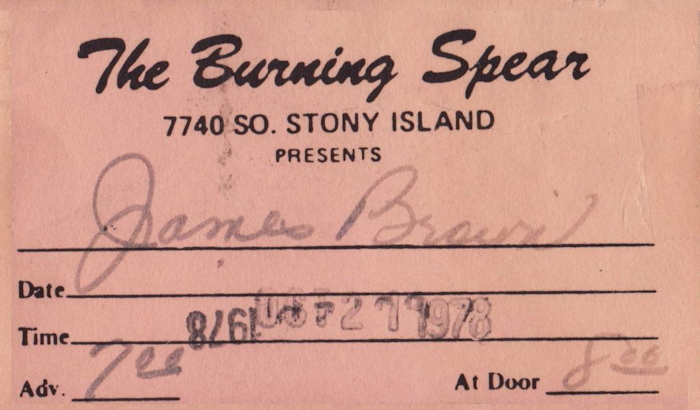 The Burning Spear
7740 SO. STONY ISLAND
PRESENTS
James Brown
Date
Time 1978 1978
Adv. 7 00 At Door 8 00